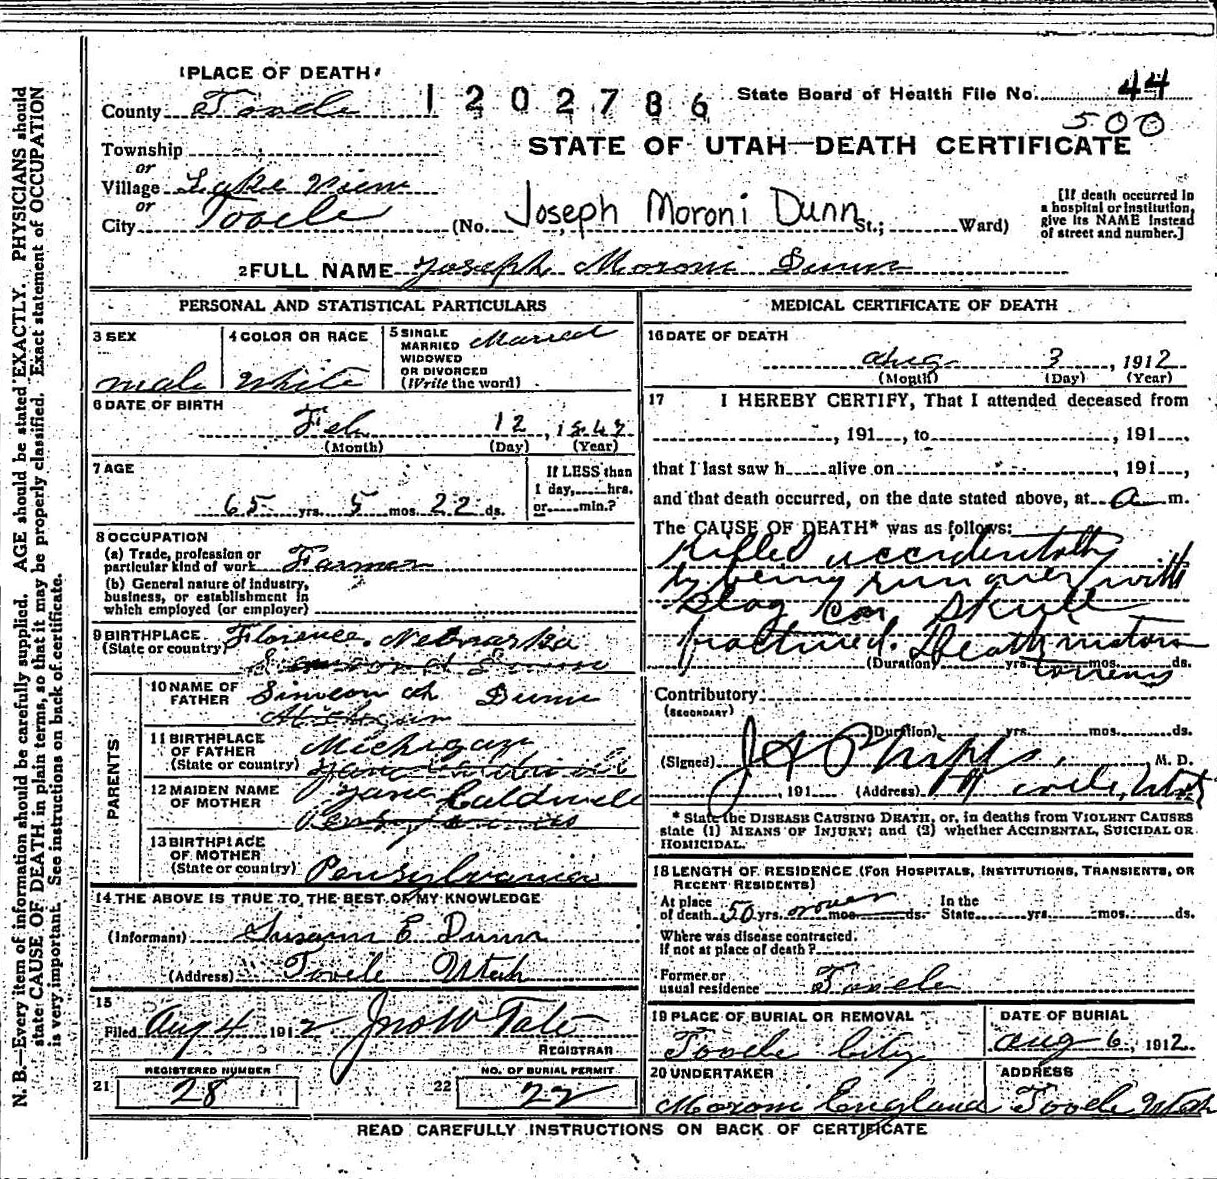 PLACE OF DEATH
County Tooele
1202786
State Board of Health File No. 44
500
STATE OF UTAH—DEATH CERTIFICATE
Township
or
Village Lake View
or
City Tooele (No. Joseph Moroni Dunn St.; Ward)
[If death occurred in a hospital or institution, give its NAME instead of street and number.]
2 FULL NAME Joseph Moroni Dunn
PERSONAL AND STATISTICAL PARTICULARS
3 SEX
male
4 COLOR OR RACE
White
5 SINGLE
MARRIED
WIDOWED
OR DIVORCED
(Write the word)
Married
6 DATE OF BIRTH
Feb 12, 1847
(Month) (Day) (Year)
7 AGE
65 yrs. 5 mos. 22 ds.
If LESS than
1 day, hrs.
or min.?
8 OCCUPATION
(a) Trade, profession or
particular kind of work Farmer
(b) General nature of industry,
business, or establishment in
which employed (or employer)
9 BIRTHPLACE
(State or country) Florence, Nebraska
10 NAME OF
FATHER Simeon A Dunn
11 BIRTHPLACE
OF FATHER
(State or country) Michigan
12 MAIDEN NAME
OF MOTHER Jane Caldwell
13 BIRTHPLACE
OF MOTHER
(State or country) Pensylvania
PARENTS
14 THE ABOVE IS TRUE TO THE BEST OF MY KNOWLEDGE
(Informant) Susann E Dunn
(Address) Tooele Utah
15
Filed Aug 4 1912 Jno W Tate
REGISTRAR
REGISTERED NUMBER
21 28
NO. OF BURIAL PERMIT
22 22
MEDICAL CERTIFICATE OF DEATH
16 DATE OF DEATH
Aug 3, 1912
(Month) (Day) (Year)
17 I HEREBY CERTIFY, That I attended deceased from
, 191 , to , 191 ,
that I last saw h alive on , 191 ,
and that death occurred, on the date stated above, at a m.
The CAUSE OF DEATH* was as follows:
Killed accidentally
by being run over with
Slag car Skull
fractured. Death
(Duration) yrs. mos. ds.
Contributory
(SECONDARY)
(Duration) yrs. mos. ds.
(Signed) J A Phipps, M. D.
, 191 (Address) Tooele, Utah
* State the DISEASE CAUSING DEATH, or, in deaths from VIOLENT CAUSES
state (1) MEANS OF INJURY; and (2) whether ACCIDENTAL, SUICIDAL OR
HOMICIDAL.
18 LENGTH OF RESIDENCE (FOR HOSPITALS, INSTITUTIONS, TRANSIENTS, OR
RECENT RESIDENTS)
At place
of death 50 yrs. mos. ds.
In the
State yrs. mos. ds.
Where was disease contracted,
If not at place of death?
Former or
usual residence Tooele
19 PLACE OF BURIAL OR REMOVAL
Tooele City
DATE OF BURIAL
Aug 6, 1912
20 UNDERTAKER
Moroni England
ADDRESS
Tooele Utah
READ CAREFULLY INSTRUCTIONS ON BACK OF CERTIFICATE
N. B.—Every item of information should be carefully supplied. AGE should be stated EXACTLY. PHYSICIANS should
state CAUSE OF DEATH in plain terms, so that it may be properly classified. Exact statement of OCCUPATION
is very important. See instructions on back of certificate.